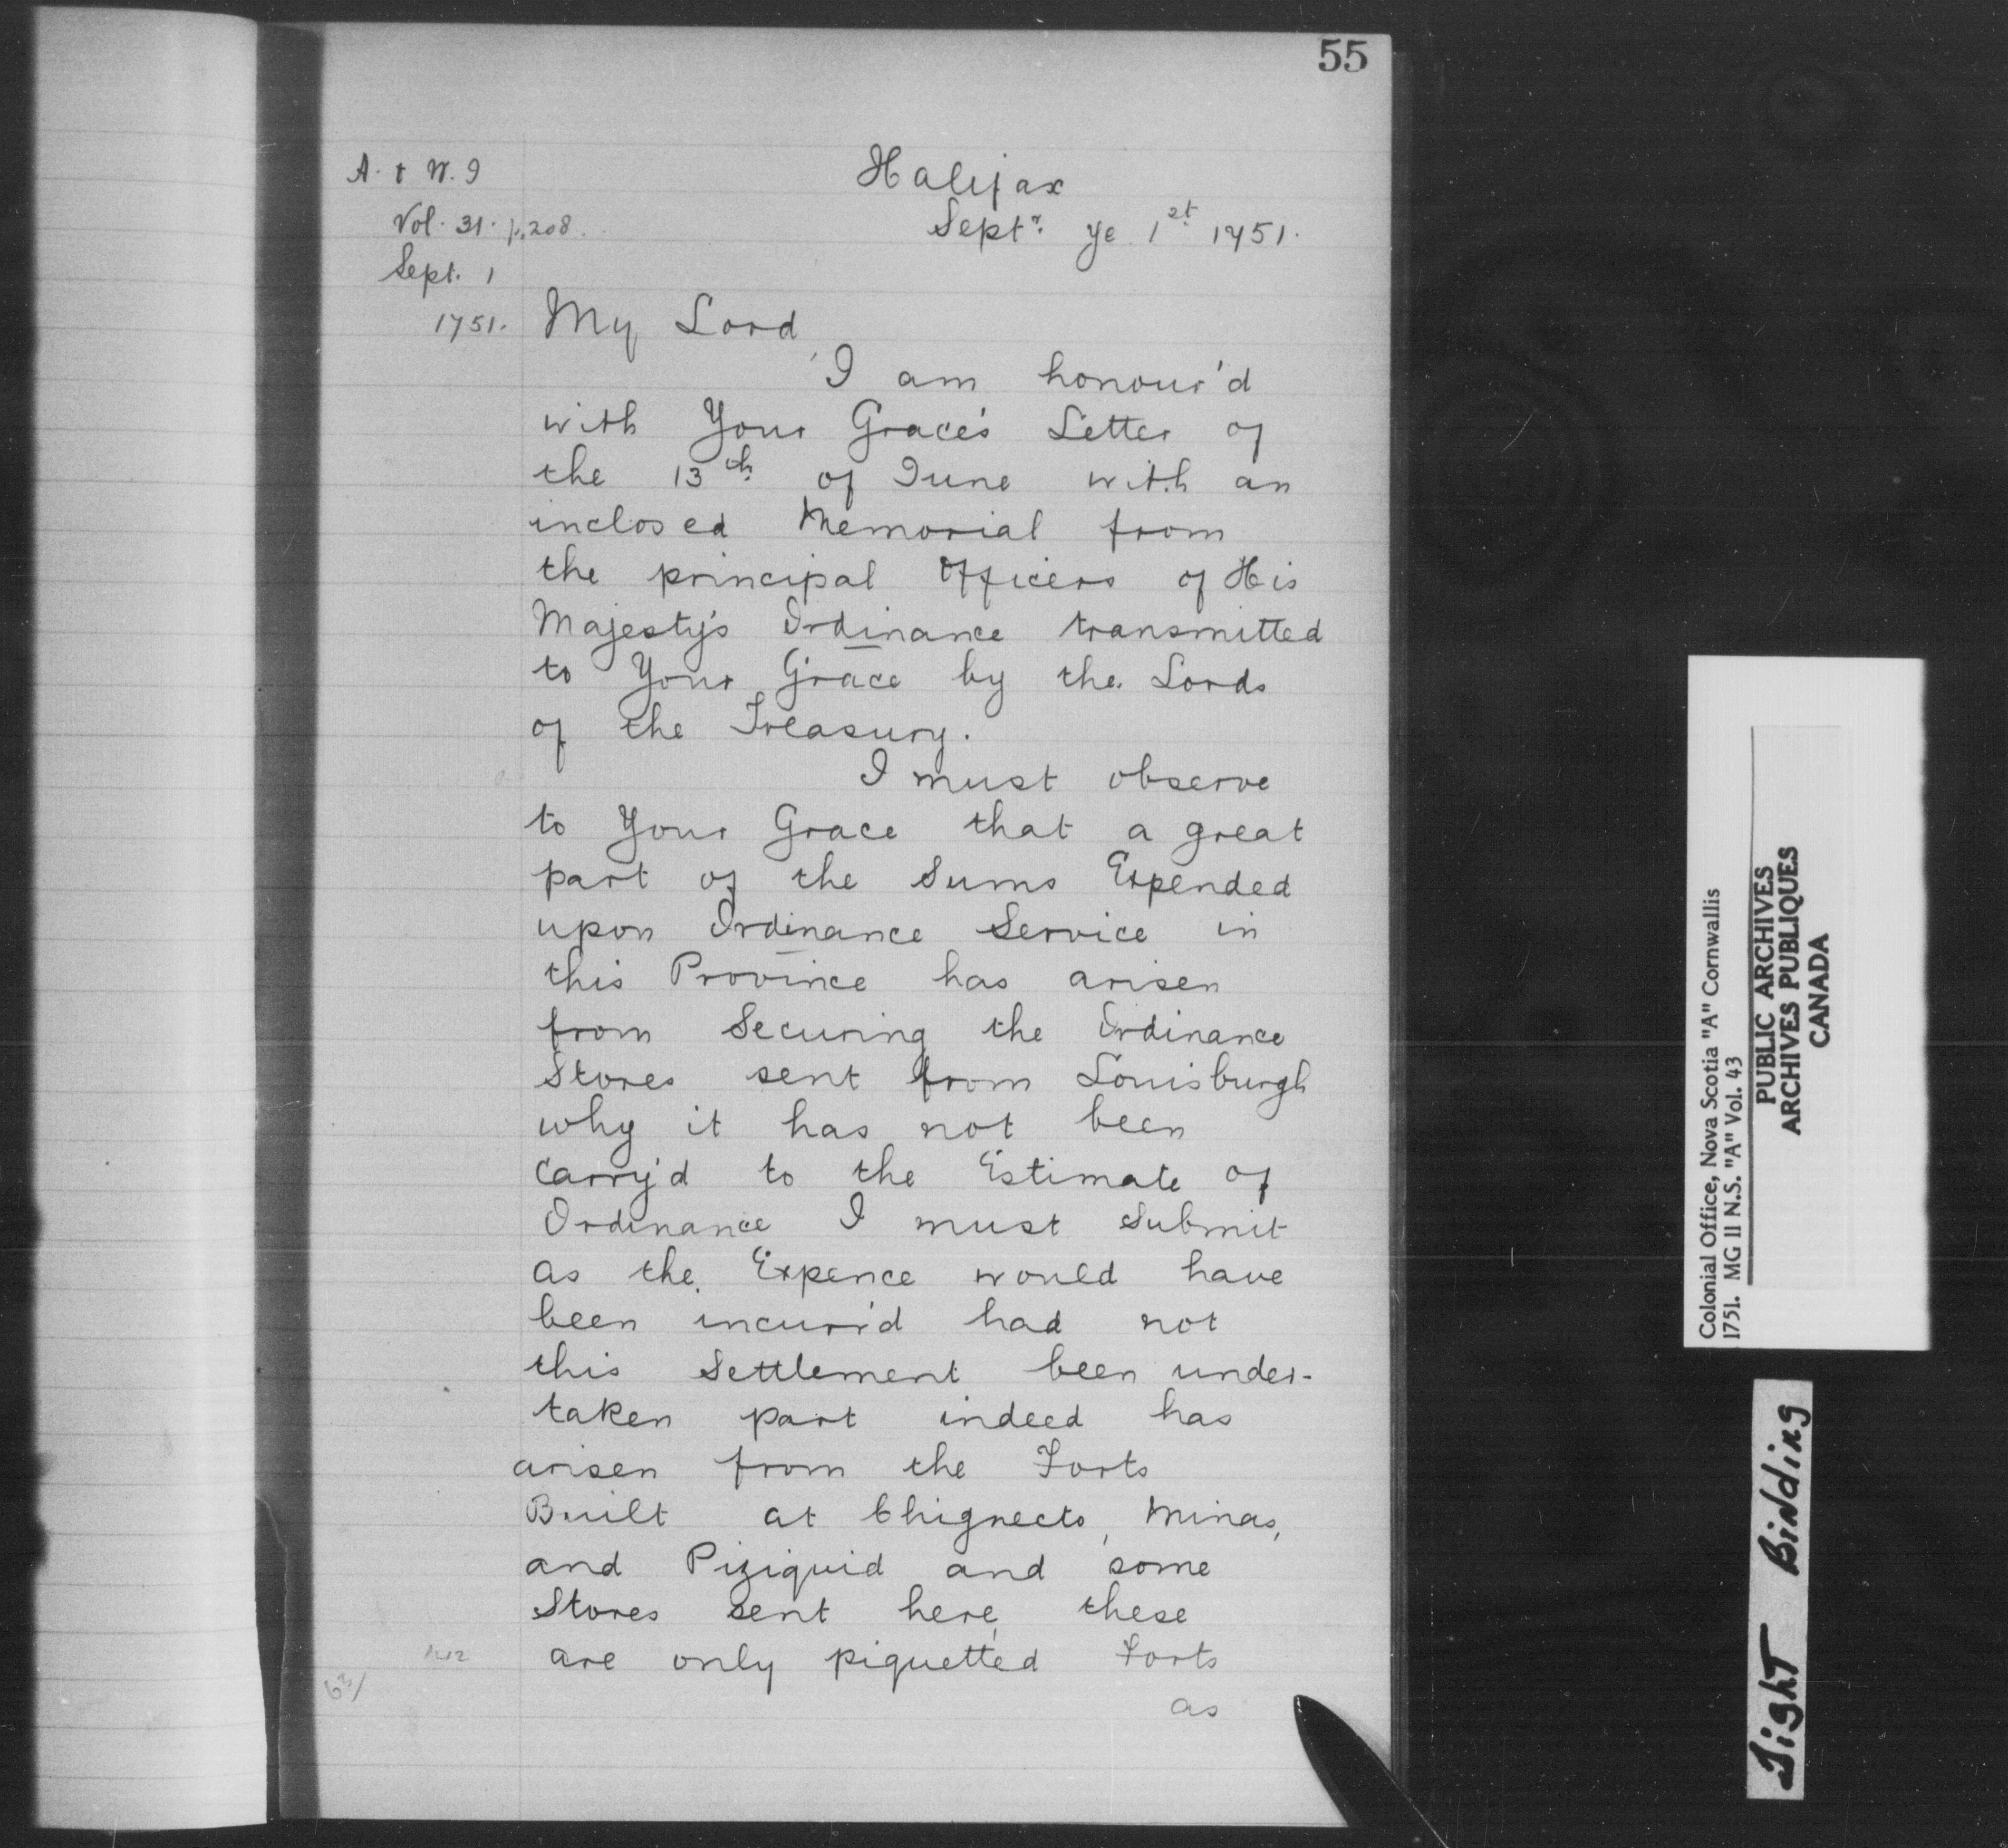 55
A. & W. I
Vol. 31. p. 208.
Sept. 1
1751.
Halifax
Septr. ye 1st 1751.
My Lord,
I am honour'd
with Your Grace's Letter of
the 13th of June with an
inclosed Memorial from
the principal Officers of His
Majesty's Ordinance transmitted
to Your Grace by the Lords
of the Treasury.
I must observe
to Your Grace that a great
part of the Sums Expended
upon Ordinance Service in
this Province has arisen
from Securing the Ordinance
Stores sent from Louisburgh
why it has not been
Carry'd to the Estimate of
Ordinance I must Submit
as the Expence would have
been incurr'd had not
this Settlement been under-
taken part indeed has
arisen from the Forts
Built at Chignecto, Minas,
and Piziquid and some
Stores sent here, these
are only piquetted Forts
as
Colonial Office, Nova Scotia "A" Cornwallis
1751. MG 11 N.S. "A" Vol. 43
PUBLIC ARCHIVES
ARCHIVES PUBLIQUES
CANADA
Tight Binding